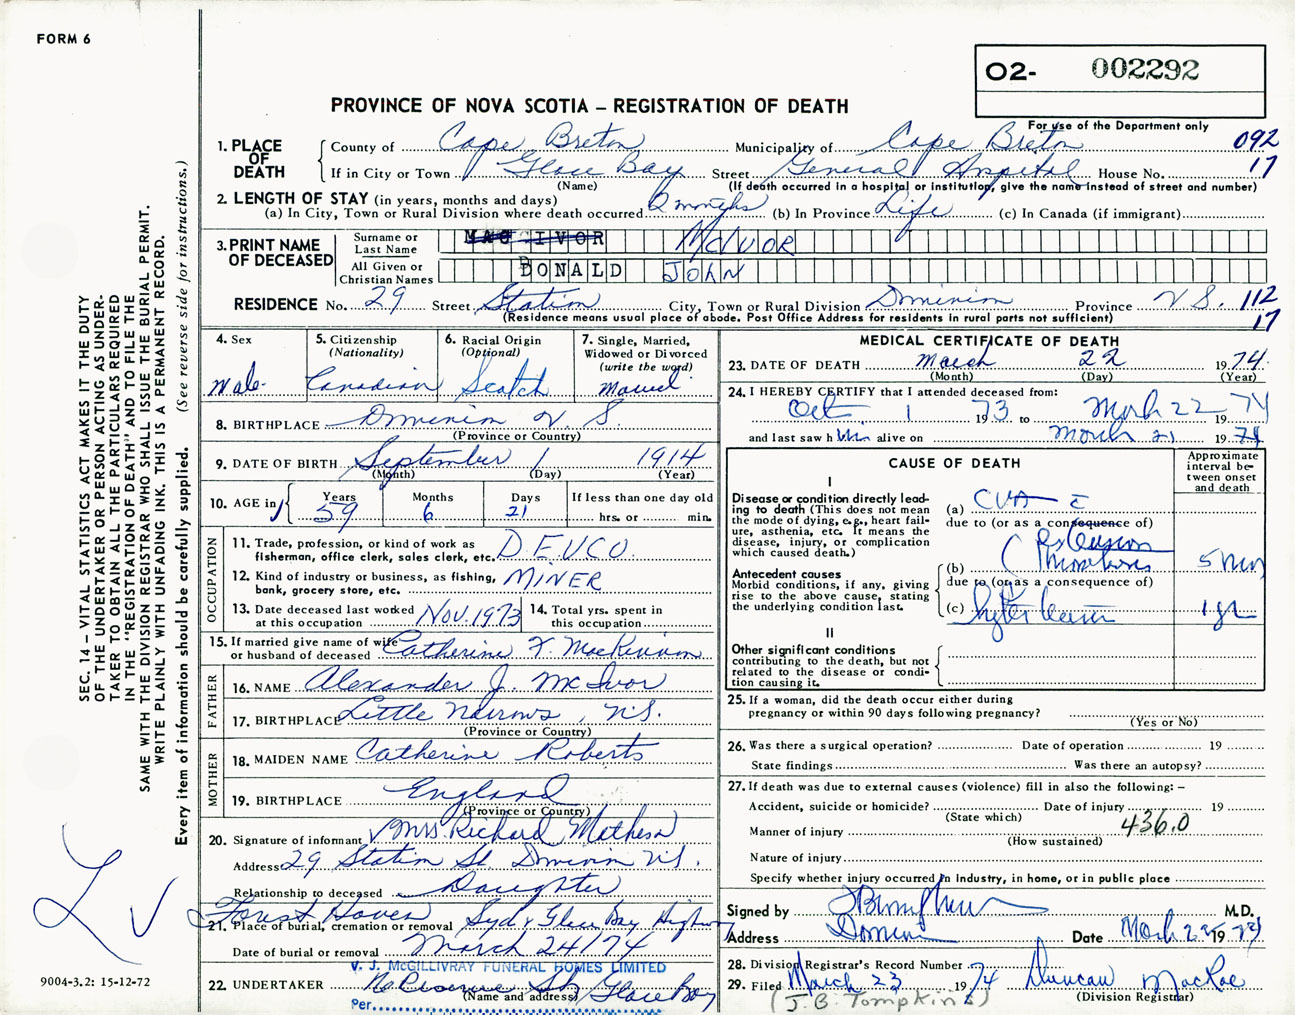 FORM 6
O2- 002292
PROVINCE OF NOVA SCOTIA – REGISTRATION OF DEATH
For use of the Department only
1. PLACE OF DEATH
County of Cape Breton Municipality of Cape Breton 092
If in City or Town Glace Bay Street General Hospital House No. 17
(Name) (If death occurred in a hospital or institution, give the name instead of street and number)
2. LENGTH OF STAY (in years, months and days)
(a) In City, Town or Rural Division where death occurred 2 months (b) In Province Life (c) In Canada (if immigrant)
3. PRINT NAME OF DECEASED
Surname or Last Name MAC IVOR McIVOR
All Given or Christian Names DONALD JOHN
RESIDENCE No. 29 Street Station City, Town or Rural Division Dominion Province N.S. 112
(Residence means usual place of abode. Post Office Address for residents in rural parts not sufficient) 17
4. Sex Male
5. Citizenship (Nationality) Canadian
6. Racial Origin (Optional) Scotch
7. Single, Married, Widowed or Divorced (write the word) Married
8. BIRTHPLACE Dominion N.S.
(Province or Country)
9. DATE OF BIRTH September 1 1914
(Month) (Day) (Year)
10. AGE in Years 59 Months 6 Days 21 If less than one day old hrs. or min.
OCCUPATION
11. Trade, profession, or kind of work as fisherman, office clerk, sales clerk, etc. DEVCO
12. Kind of industry or business, as fishing, bank, grocery store, etc. MINER
13. Date deceased last worked at this occupation Nov. 1973
14. Total yrs. spent in this occupation
15. If married give name of wife or husband of deceased Catherine F. MacKinnon
FATHER
16. NAME Alexander J. McIvor
17. BIRTHPLACE Little Narrows, N.S.
(Province or Country)
MOTHER
18. MAIDEN NAME Catherine Roberts
19. BIRTHPLACE England
(Province or Country)
20. Signature of informant Mrs. Richard Matheson
Address 29 Station St. Dominion N.S.
Relationship to deceased Daughter
Forest Haven
21. Place of burial, cremation or removal Syd & Glace Bay Highway
Date of burial or removal March 24/74
V. J. McGILLIVRAY FUNERAL HOMES LIMITED
22. UNDERTAKER Reserve St Glace Bay
(Name and address)
Per
MEDICAL CERTIFICATE OF DEATH
23. DATE OF DEATH March 22 1974
(Month) (Day) (Year)
24. I HEREBY CERTIFY that I attended deceased from:
Oct 1 1973 to March 22 1974
and last saw him alive on March 21 1974
CAUSE OF DEATH
Approximate interval between onset and death
I
Disease or condition directly leading to death (This does not mean the mode of dying, e.g., heart failure, asthenia, etc. It means the disease, injury, or complication which caused death.)
(a) CVA
due to (or as a consequence of)
Antecedent causes
Morbid conditions, if any, giving rise to the above cause, stating the underlying condition last.
(b) 5
due to (or as a consequence of)
(c) 1 yr
II
Other significant conditions
contributing to the death, but not related to the disease or condition causing it.
25. If a woman, did the death occur either during pregnancy or within 90 days following pregnancy?
(Yes or No)
26. Was there a surgical operation? Date of operation 19
State findings Was there an autopsy?
27. If death was due to external causes (violence) fill in also the following: –
Accident, suicide or homicide? Date of injury 19
(State which)
Manner of injury 436.0
(How sustained)
Nature of injury
Specify whether injury occurred in industry, in home, or in public place
Signed by M.D.
Address Dominion Date March 22 1974
28. Division Registrar's Record Number
29. Filed March 23 1974 Duncan MacRae
(J.B. Tompkins) (Division Registrar)
SEC. 14 – VITAL STATISTICS ACT MAKES IT THE DUTY
OF THE UNDERTAKER OR PERSON ACTING AS UNDER-
TAKER TO OBTAIN ALL THE PARTICULARS REQUIRED
IN THE "REGISTRATION OF DEATH" AND TO FILE THE
SAME WITH THE DIVISION REGISTRAR WHO SHALL ISSUE THE BURIAL PERMIT.
WRITE PLAINLY WITH UNFADING INK. THIS IS A PERMANENT RECORD.
Every item of information should be carefully supplied. (See reverse side for instructions.)
9004-3.2: 15-12-72